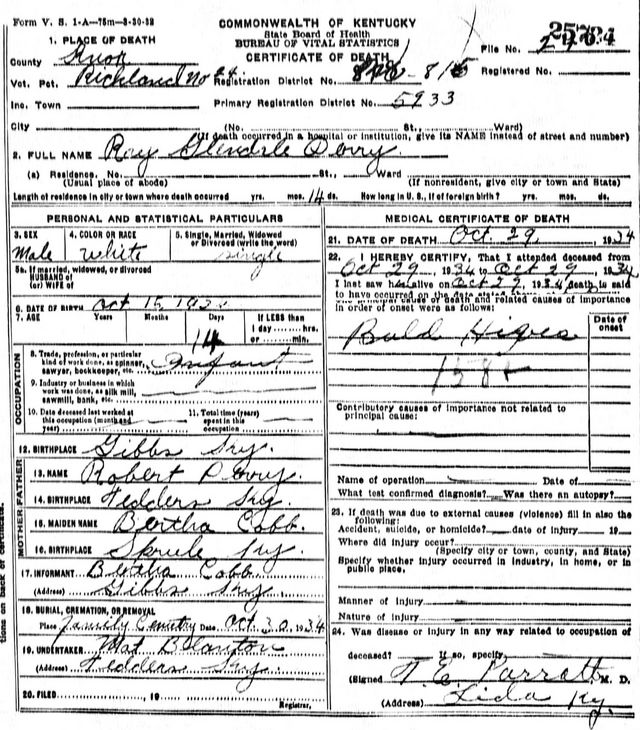 Form V. S. 1-A—75m—3-30-32
COMMONWEALTH OF KENTUCKY
State Board of Health
BUREAU OF VITAL STATISTICS
CERTIFICATE OF DEATH
File No.
Registered No.
1. PLACE OF DEATH
County Knox
Vot. Pct. Richland No 24
Registration District No. 815
Inc. Town
Primary Registration District No. 5933
City (No. St., Ward)
(If death occurred in a hospital or institution, give its NAME instead of street and number)
2. FULL NAME Roy Glendrle
(a) Residence. No. St., Ward
(Usual place of abode) (If nonresident, give city or town and State)
Length of residence in city or town where death occurred yrs. mos. 14 ds. How long in U. S., if of foreign birth? yrs. mos. ds.
PERSONAL AND STATISTICAL PARTICULARS
3. SEX 4. COLOR OR RACE 5. Single, Married, Widowed
or Divorced (write the word)
Male white Single
5a. If married, widowed, or divorced
HUSBAND of
(or) WIFE of
6. DATE OF BIRTH Oct 15,
7. AGE Years Months Days If LESS than
1 day hrs.
or min.
14
OCCUPATION
8. Trade, profession, or particular
kind of work done, as spinner,
sawyer, bookkeeper, etc. Infant
9. Industry or business in which
work was done, as silk mill,
sawmill, bank, etc.
10. Date deceased last worked at
this occupation (month and
year)
11. Total time (years)
spent in this
occupation
12. BIRTHPLACE Gibbs Ky
FATHER
13. NAME Robert
14. BIRTHPLACE Fedders Ky
MOTHER
15. MAIDEN NAME Bertha Cobb
16. BIRTHPLACE Sprule Ky
17. INFORMANT Bertha Cobb
(Address) Gibbs Ky
18. BURIAL, CREMATION, OR REMOVAL
Place Family Cemetry Date Oct 30 1934
19. UNDERTAKER Mat Blanton
(Address) Fedders Ky
20. FILED , 19
Registrar.
MEDICAL CERTIFICATE OF DEATH
21. DATE OF DEATH Oct. 29, 1934
22. I HEREBY CERTIFY, That I attended deceased from
Oct 29, 1934 to Oct 29, 1934
I last saw h alive on Oct 29, 1934 death is said
to have occurred on the date stated above
The principal cause of death and related causes of importance
in order of onset were as follows:
Date of
onset
Bold Hives
Contributory causes of importance not related to
principal cause:
Name of operation Date of
What test confirmed diagnosis? Was there an autopsy?
23. If death was due to external causes (violence) fill in also the
following:
Accident, suicide, or homicide? date of injury 19
Where did injury occur?
(Specify city or town, county, and State)
Specify whether injury occurred in industry, in home, or in
public place.
Manner of injury
Nature of injury
24. Was disease or injury in any way related to occupation of
deceased? If so, specify
(Signed T. E. Parrott M. D.
(Address) Lida Ky.
tions on back of certificate.